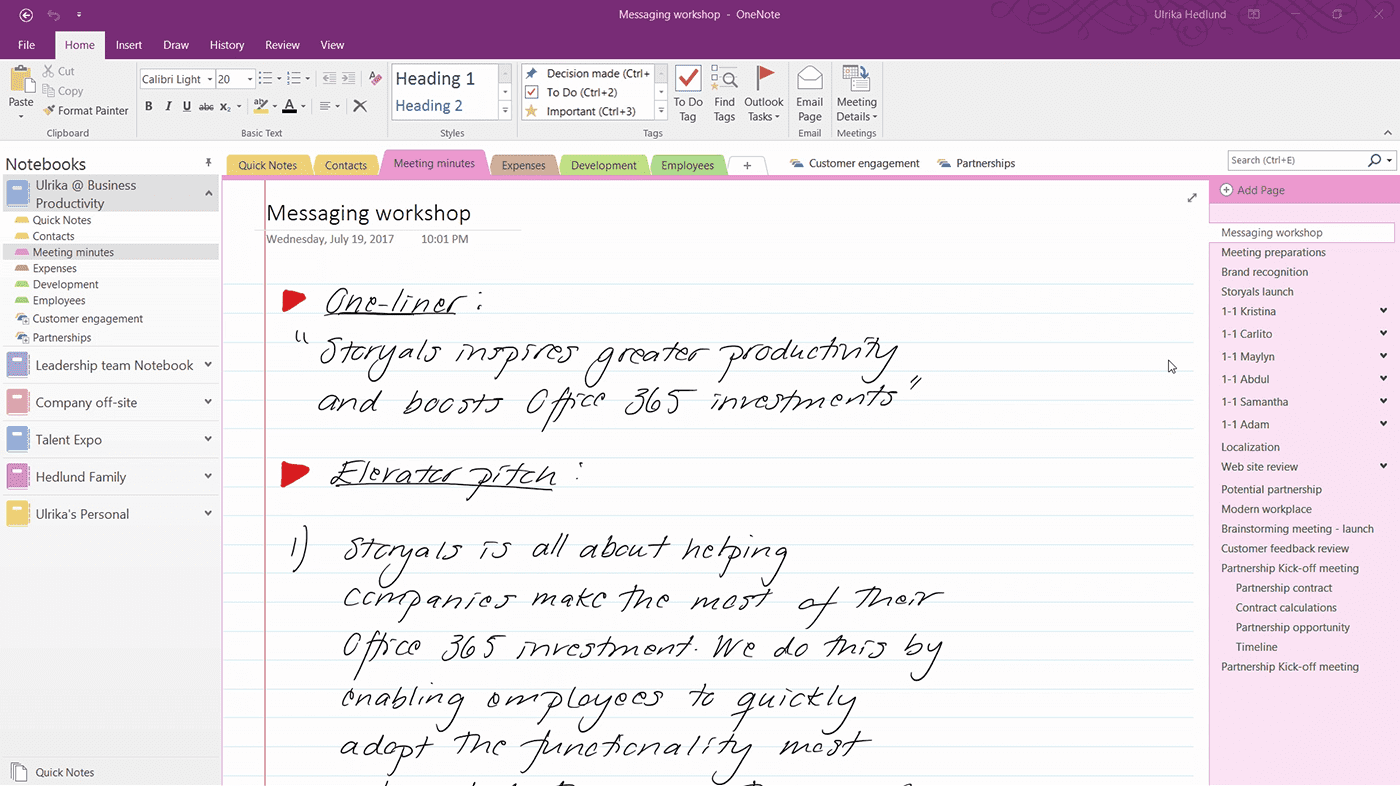 Messaging workshop - OneNote
Ulrika Hedlund
File Home Insert Draw History Review View
Paste
Cut
Copy
Format Painter
Clipboard
Calibri Light 20
B I U abc X₂ A
Basic Text
Heading 1
Heading 2
Styles
Decision made (Ctrl+
To Do (Ctrl+2)
Important (Ctrl+3)
Tags
To Do
Tag
Find
Tags
Outlook
Tasks
Email
Page
Email
Meeting
Details
Meetings
Notebooks
Ulrika @ Business
Productivity
Quick Notes
Contacts
Meeting minutes
Expenses
Development
Employees
Customer engagement
Partnerships
Leadership team Notebook
Company off-site
Talent Expo
Hedlund Family
Ulrika's Personal
Quick Notes
Quick Notes Contacts Meeting minutes Expenses Development Employees + Customer engagement Partnerships
Search (Ctrl+E)
Messaging workshop
Wednesday, July 19, 2017 10:01 PM
One-liner :
"Storyals inspires greater productivity
and boosts Office 365 investments"
Elevator pitch :
1) Storyals is all about helping
companies make the most of their
Office 365 investment. We do this by
enabling employees to quickly
adopt the functionality most
Add Page
Messaging workshop
Meeting preparations
Brand recognition
Storyals launch
1-1 Kristina
1-1 Carlito
1-1 Maylyn
1-1 Abdul
1-1 Samantha
1-1 Adam
Localization
Web site review
Potential partnership
Modern workplace
Brainstorming meeting - launch
Customer feedback review
Partnership Kick-off meeting
Partnership contract
Contract calculations
Partnership opportunity
Timeline
Partnership Kick-off meeting